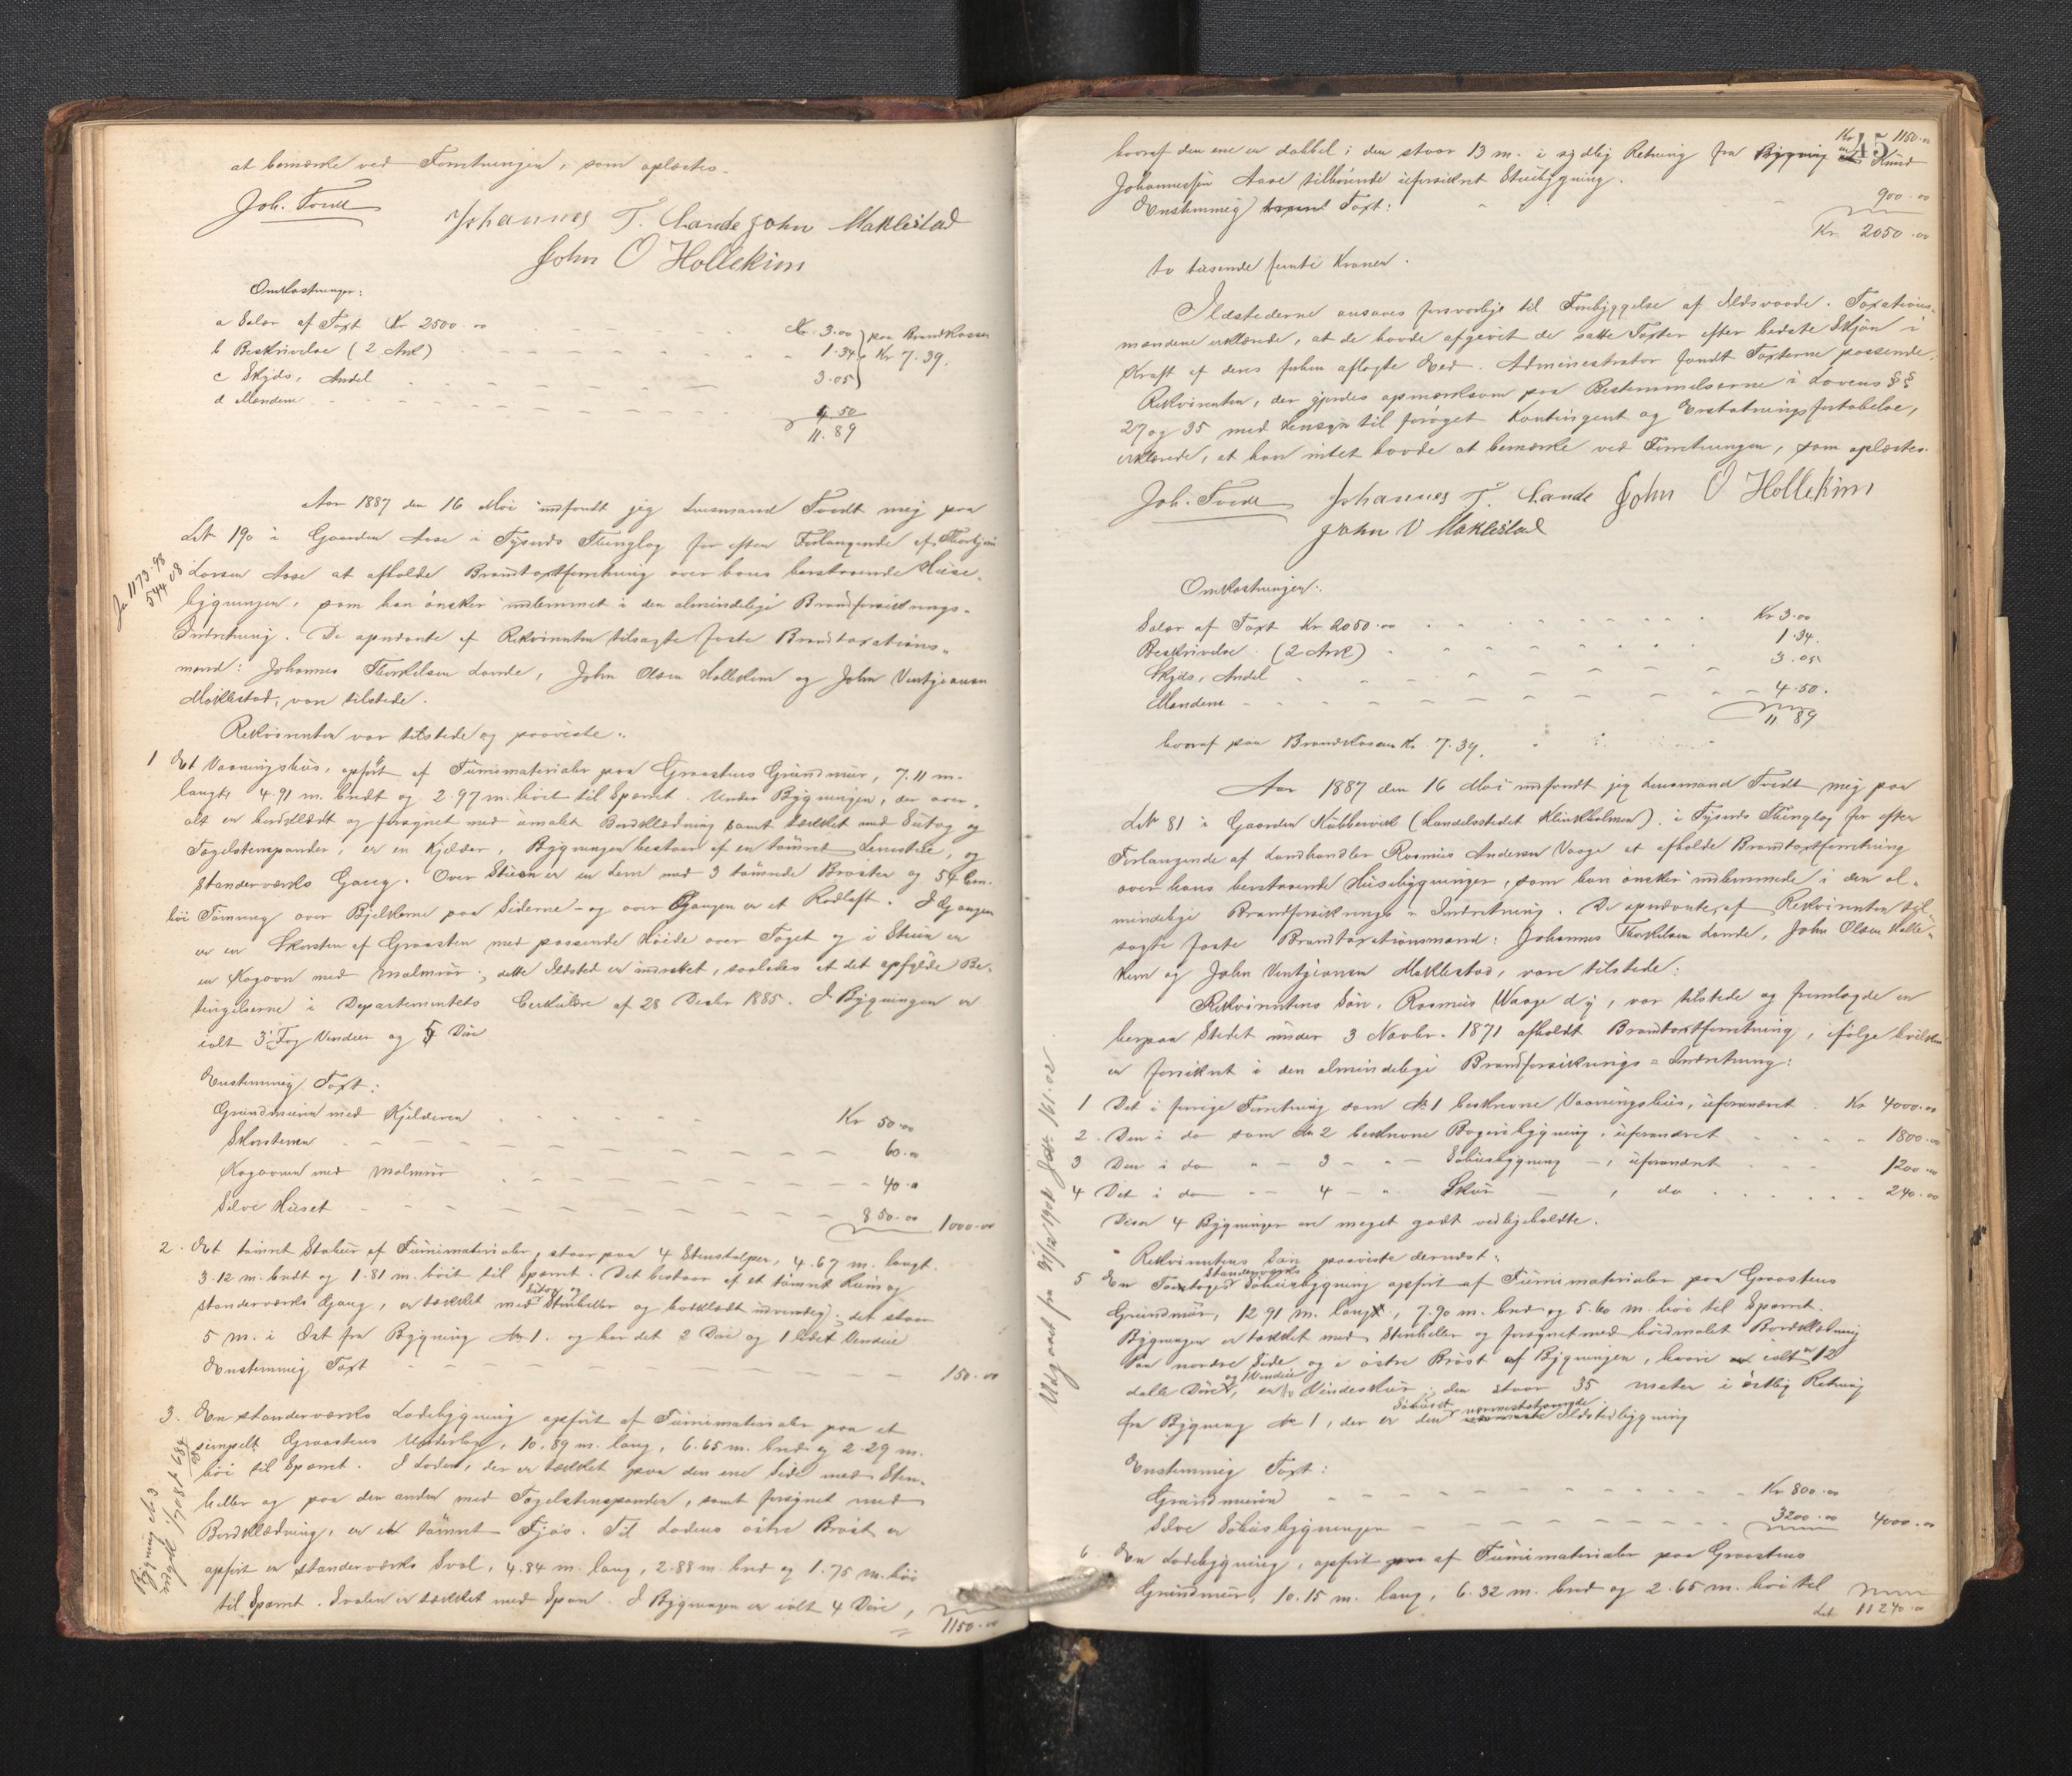 at bemærke ved Forretningen, som oplæstes.
Joh. Tvedt
Johannes T. Lande John Maklestad
John O Hollekim
Omkostninger:
a Salær af Taxt Kr 2500.00 Kr. 3.00 paa Brandkassen
b Beskrivelse (2 Ark) 1.34 Kr 7.39.
c Skyds, Andel 3.05
d Mændene 4.50
11.89
Aar 1887 den 16 Mai indfandt jeg Lensmand Tvedt mig paa
Lit 190 i Gaarden Aase i Tysnæs Thinglag for efter Forlangende af Thorbjørn
Larsen Aase at afholde Brandtaxtforretning over hans berstaaende Huse-
bygninger, som han ønsker indlemmet i den almindelige Brandforsikrings-
Indretning. De opnævnte af Rekvirenten tilsagte faste Brandtaxations-
mænd: Johannes Thorkildsen Lande, John Olsen Hollekim og John
Maklestad, var tilstede.
Rekvirenten var tilstede og paaviste:
1 Et Vaaningshus, opført af Furumaterialer paa Graastens Grundmur, 7.11 m.
langt, 4.91 m. bredt og 2.97 m. høit til Sparret. Under Bygningen, der over-
alt er bordklædt og forsynet med umalet Bordklædning samt tækket med Sutag og
Tagstenspander, er en Kjelder. Bygningen bestaar af en tømret Lemstue, og
Standerværks Gang. Over Stuen er en Lem med 3 tømrede Brøster og 54 Cm.
høi Tømring over Bjelkerne paa Siderne - og over Gangen er et Rodloft. I Gangen
er en Skorsten af Graasten med passende Høide over Taget og i Stuen er
en Kogovn med Malmrør; dette Ildsted er indrettet, saaledes at det opfylder Be-
tingelserne i Departementets Cerkulære af 28 Decbr 1885. I Bygningen er
ialt 3 Fag Vinduer og 5 Døre
Enstemmig Taxt:
Grundmuren med Kjelderen Kr 50.00
Skorstenen 60.00
Kogovnen med Malmrør 40.00
Selve Huset 850.00 1000.00
2. Et tømret Stabur af Furumaterialer, staar paa 4 Stenstolper, 4.67 m. langt,
3.12 m. bredt og 1.81 m. høit til Sparret. Det bestaar af et tømret Rum og
Sutag og
Standerværks Gang, er tækket med Stenheller og bordklædt udvendig; det staar
5 m. i Øst fra Bygning No 1. og har det 2 Døre og 1 lidet Vindue
Enstemmig Taxt 150.00
3. En standerværks Ladebygning opført af Furumaterialer paa et
simpelt Graastens Underlag, 10.89 m. lang, 6.65 m. bred og 2.29 m.
høi til Sparret. I Laden, der er tækket paa den ene Side med Sten-
heller og paa den anden med Tagstenspander, samt forsynet med
Bordklædning, er et tømret Fjøs. Til Ladens østre Brøst er
opført en standerværks Sval, 4.84 m. lang, 2.88 m. bred og 1.75 m. høi
til Sparret. Svalen er tækket med Spon. I Bygningen er ialt 4 Døre,
1150.00
1173.98
544.08
Bygning No 3
udgaaet 1/7 08 684
45
Kr 1150.00
hvoraf den ene er dobbel; den staar 13 m. i sydlig Retning fra Bygning Knud
Johannessen Aase tilhørende uforsikret Stuebygning.
Enstemmig Taxt: 900.00
Kr. 2050.00
to tusende femti Kroner.
Ildstederne ansaaes forsvarlige til Forebyggelse af Ildsvaade. Taxations-
mændene erklærede, at de havde afgivet de satte Taxter efter bedste Skjøn i
Kraft af deres forhen aflagte Eed. Administrator fandt Taxterne passende.
Rekvirenten, der gjordes opmærksom paa Bestemmelserne i Lovens §§
27 og 35 med Hensyn til forøget Kontingent og Erstatningsfortabelse,
erklærede, at han intet havde at bemærke ved Forretningen, som oplæstes.
Joh. Tvedt Johannes T. Lande John O Hollekim
John V Maklestad
Omkostninger:
Salær af Taxt Kr 2050.00 Kr 3.00
Beskrivelse (2 Ark) 1.34.
Skyds, Andel 3.05
Mændene 4.50.
11 89
hvoraf paa Brandkassen Kr. 7.39.
Aar 1887 den 16 Mai indfandt jeg Lensmand Tvedt mig paa
Lit 81 i Gaarden Nubbervik (Landelsstedet Klinkholmen) i Tysnæs Thinglag for efter
Forlangende af Landhandler Rasmus Andersen Vaage at afholde Brandtaxtforretning
over hans berstaaende Husebygninger, som han ønsker indlemmede i den al-
mindelige Brandforsikrings-Indretning. De opnævnte, af Rekvirenten til-
sagte faste Brandtaxationsmænd: Johannes Thorkildsen Lande, John Olsen Holle-
kim og John Maklestad, vare tilstede:
Rekvirentens Søn, Rasmus Waage d y, var tilstede og fremlagde en
herpaa Stedet under 3 Novbr. 1871 afholdt Brandtaxtforretning, ifølge hvilken
er forsikret i den almindelige Brandforsikrings-Indretning:
1 Det i forrige Forretning som No 1 beskrevne Vaaningshus, uforandret Kr 4000.00
2. Den i do som No 2 beskrevne Bageribygning, uforandret 1800.00
3 Den i do " 3 " Søhusbygning, uforandret 1200.00
4 Det i do " 4 " Skur, do 240.00
Disse 4 Bygninger ere meget godt vedligeholdte.
Rekvirentens Søn paaviste dernæst:
Standerværks
5 En Søhusbygning opført af Furumaterialer paa Graastens
Grundmur, 12.91 m. lang, 7.90 m. bred og 5.60 m. høi til Sparret.
Bygningen er tækket med Stenheller og forsynet med hvidmalet Bordklædning
paa nordre Side og i østre Brøst af Bygningen, hvori er ialt 12
og Vinduer
dobble Døre, den staar 35 meter i østlig Retning
Søhuset nærmeststaaende
fra Bygning No 1, der er den Ildstedbygning
Enstemmig Taxt:
Grundmuren Kr 800.00
Selve Søhusbygningen 3200.00 4000.00
6. En Ladebygning, opført af Furumaterialer paa Graastens
Grundmur, 10.15 m. lang, 6.32 m. bred og 2.65 m. høi til
Lat 11240.00